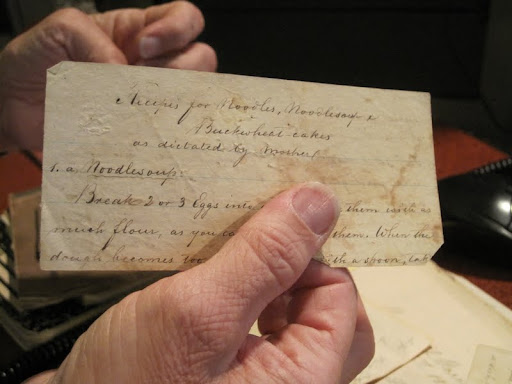 Recipes for Noodles, Noodlesoup &
Buckwheat-cakes
as dictated by Mother
1. a. Noodlesoup:
Break 2 or 3 Eggs into them with as
much flour, as you ca them. When the
dough becomes too with a spoon, tak